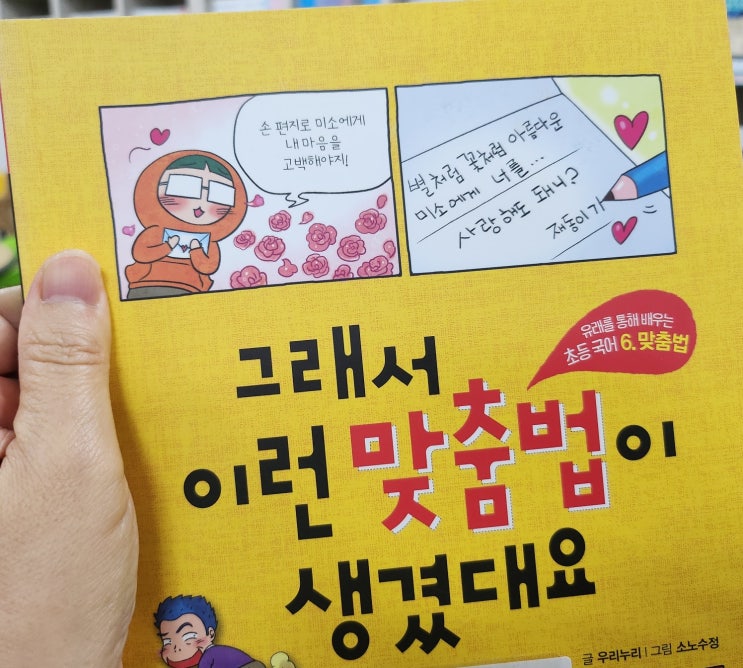 손 편지로 미소에게
내 마음을
고백해야지!
별처럼 꽃처럼 아름다운
미소에게 너를...
사랑해도 돼나?
재동이가
유래를 통해 배우는
초등 국어 6. 맞춤법
그래서
이런 맞춤법이
생겼대요
글 우리누리 | 그림 소노수정